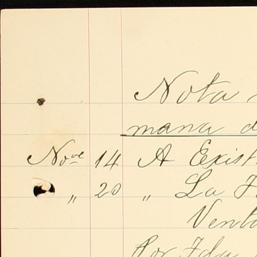 Nota
mana d
Nove 14 A Exist
" 20 " La F
Venta
Por Fdu